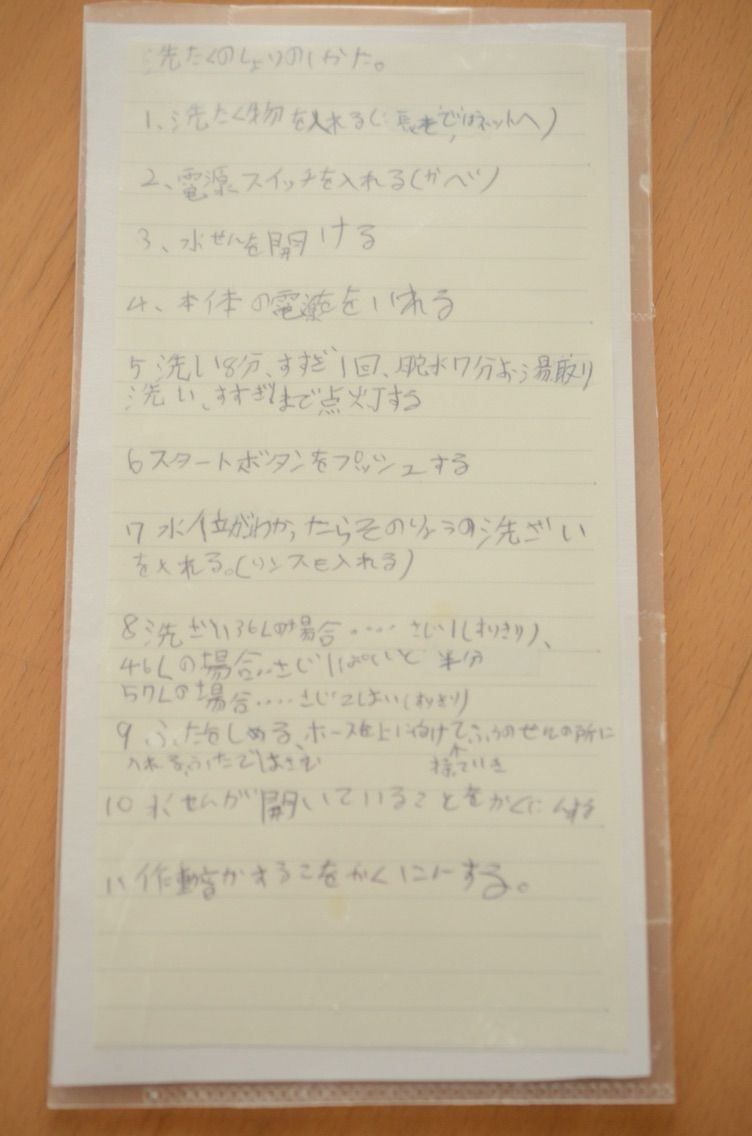 洗たくのしょりのしかた。
1、洗たく物を入れる( ではネットへ)
2、電源スイッチを入れる(かべ)
3、水せんを開ける
4、本体の電源をいれる
5洗い8分、すすぎ1回、脱水7分お湯取り
洗い、すすぎまで点灯する
6スタートボタンをプッシュする
7水位がわかったらそのりょうの洗ざい
を入れる。(リンスも入れる)
8洗ざい36Lの場合‥‥さじ1(すりきり)、
46Lの場合‥さじ1ぱいと半分
57Lの場合‥‥さじ2はい(すりきり)
9ふたをしめる、ホースを上に向けて、ふろのせんの所に
入れる、ふたではさむ
10水せんが開いていることをかくにんする
11作動音がすることをかくにんする。